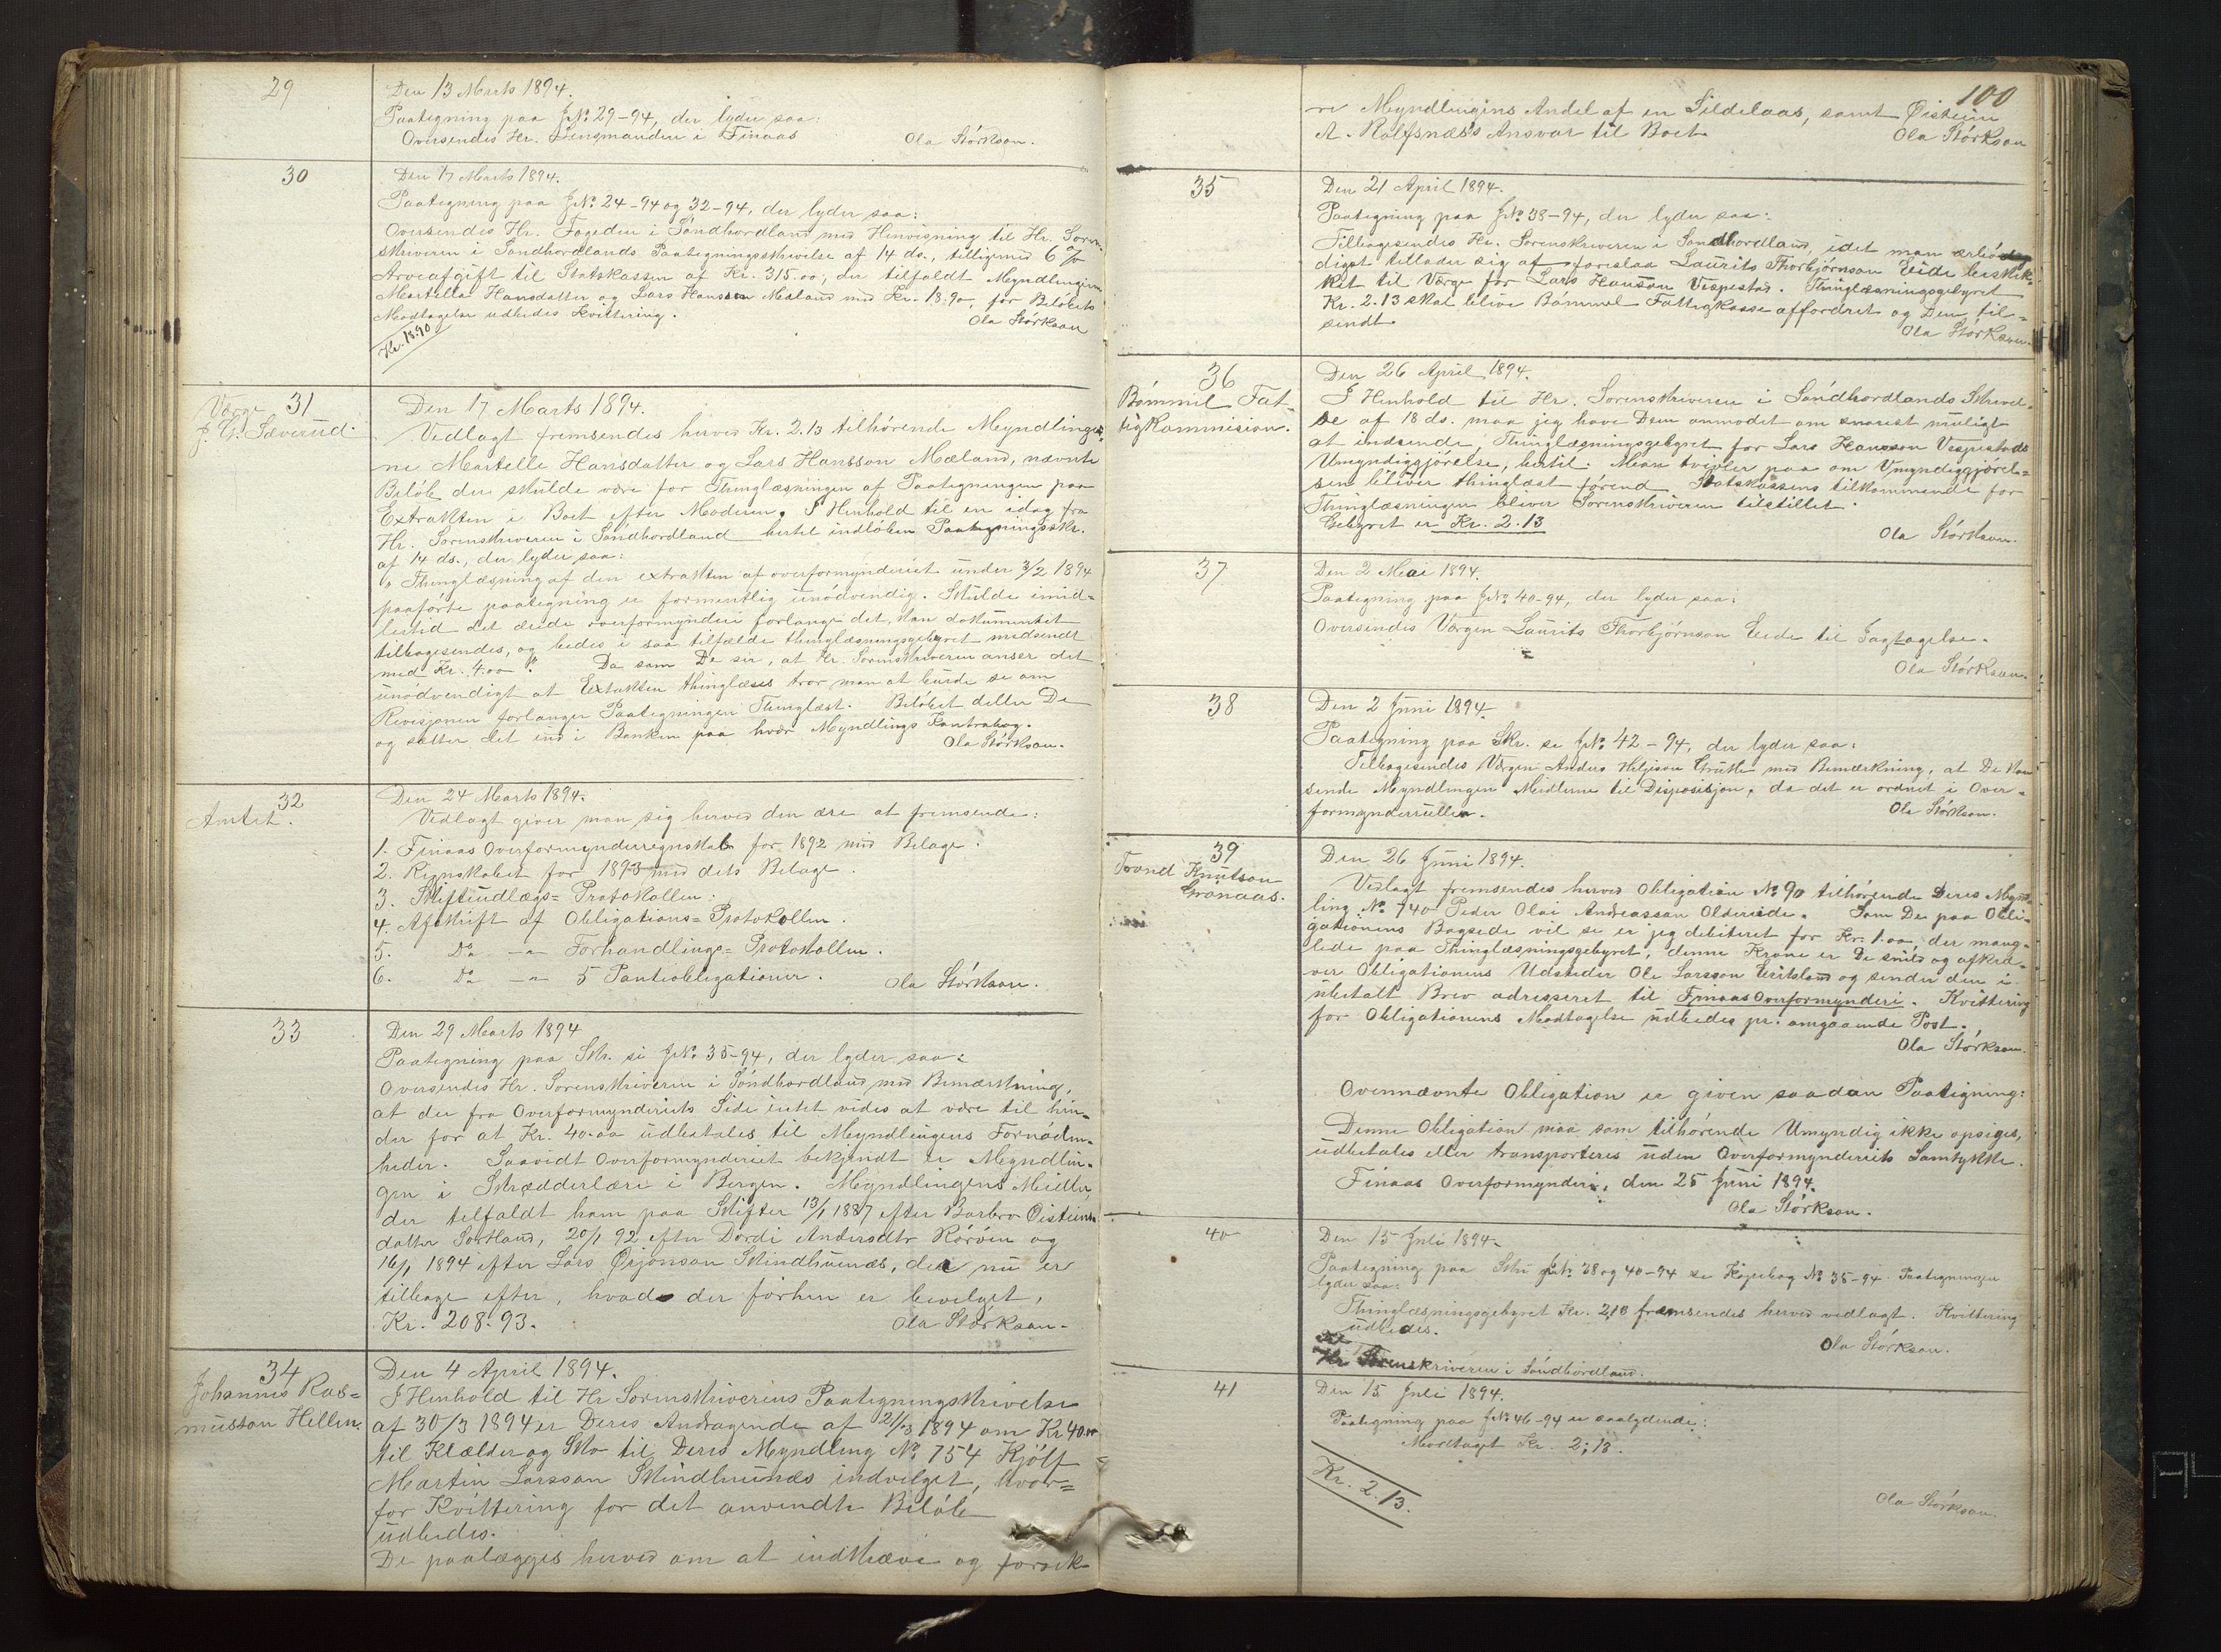 29
Den 13 Marts 1894.
Paategning paa JNo 29-94, der lyder saa:
Oversendes Hr. Lensmanden i Finaas
Ola Störkson.
30
Den 17 Marts 1894.
Paategning paa JNo 24-94 og 32-94, der lyder saa:
Oversendes Hr. Fogeden i Söndhordland med Henvisning til Hr. Soren-
skriveren i Söndhordlands Paategningsskrivelse af 14 ds., tilligemed 6 %
Arveafgift til Statskassen af Kr. 315.00, der tilfaldt Myndlingerne
Martella Hansdatter og Lars Hansson Mæland med Kr. 18.90, for Belöbets
Modtagelse udbedes Kvittering.
Ola Störkson
Kr. 18.90
31
Værge
J. G. Sæverud.
Den 17 Marts 1894.
Vedlagt fremsendes herved Kr. 2.13 tilhörende Myndlinger-
ne Martelle Hansdatter og Lars Hansson Mæland, nævnte
Belöb der skulde være for Thinglæsningen af Paategningen paa
Extrakten i Boet efter Moderen. I Henhold til en idag fra
Hr. Sorenskriveren i Söndhordland hertil indlöben Paategningsskr.
af 14 ds., der lyder saa:
"Thinglæsning af den extrakten af overformynderiet under 3/2 1894
paaförte paategning er formentlig unödvendig. Skulde imid=
lertid det ærede overformynderi forlange det, kan dokumentet
tilbagesendes, og bedes i saa tilfælde thinglæsningsgebyret medsendt
med Kr. 4.00". Da som De ser, at Hr. Sorenskriveren anser det
unödvendigt at Extrakten thinglæses tror man at burde se om
Revisjonen forlanger Paategningen Thinglæst. Belöbet deller De
og sætter det ind i Banken paa hver Myndlings Kontrabog.
Ola Störkson.
32
Amtet.
Den 24 Marts 1894.
Vedlagt giver man sig herved den ære at fremsende:
1. Finaas Overformynderregnskab for 1892 med Bilage.
2. Regnskabet for 1893 med dets Bilage.
3. Skifteudlægs=Protokollen.
4. Afskrift af Obligations=Protokollen.
5. Do — " — Forhandlings=Protokollen.
6. Do — " — 5 Panteobligationer.
Ola Störkson.
33
Den 29 Marts 1894
Paategning paa Skr. se JNo 35-94, der lyder saa:
Oversendes Hr. Sorenskriveren i Söndhordland med Bemærkning,
at der fra Overformynderiets Side intet vides at være til hin-
der for at Kr. 40.00 udbetales til Myndlingens Fornöden-
heder. Saavidt Overformynderiet bekjendt er Myndlin-
gen i Skrædderlære i Bergen. Myndlingens Midler,
der tilfaldt ham paa Skifter 13/1 1887 efter Barbro Öisteins-
datter Sortland, 20/1 92 efter Dordi Andersdtr Rörön og
16/1 1894 efter Lars Örjonson Skindhuenæs, der nu er
tilbage efter, hvad der förhen er bevilget,
Kr. 208.93.
Ola Störkson.
34
Johannes Ras=
musson Hellen.
Den 4 April 1894.
I Henhold til Hr Sorenskriverens Paategningsskrivelse
af 30/3 1894 er Deres Andragende af 21/3 1894 om Kr 40.00
til Klæder og Sko til Deres Myndling No 754 Kjölf
Martin Larsson Skindhuenæs indvilget, hvor=
for Kvittering for det anvendte Belöb
udbedes.
De paalægges herved om at indkræve og forsik
100
re Myndlingens Andel af en Sildelaas, samt Öistein
A. Rolfsnæs's Ansvar til Boet.
Ola Störkson
35
Den 21 April 1894.
Paategning paa JNo 38-94, der lyder saa:
Tilbagesendes Hr. Sorenskriveren i Söndhordland, idet man ærbö-
digst tillader sig af foreslaa Laurits Thorbjörnson Eide beskik-
ket til Værge for Lars Hanson Vespestad. Thinglæsningsgebyret
Kr. 2.13 skal blive Bömmel Fattigkasse affordret og Dem til=
sendt.
Ola Störkson.
36
Bömmel Fat-
tigkommision.
Den 26 April 1894.
I Henhold til Hr. Sorenskriveren i Söndhordlands Skrivel-
se af 18 ds. maa jeg have Dem anmodet om snarest muligt
at indsende Thinglæsningsgebyret for Lars Hansson Vespestads
Umyndiggjörelse, hertil. Man tvivler paa om Umyndiggjörel=
sen bliver thinglæst förend Statskassens tilkommende for
Thinglæsningen bliver Sorenskriveren tilstillet.
Gebyret er Kr. 2.13
Ola Störkson.
37
Den 2 Mai 1894.
Paategning paa JNo 40-94, der lyder saa:
Oversendes Værgen Laurits Thorbjörnson Eide til Iagtagelse.
Ola Störkson.
38
Den 2 Juni 1894.
Paategning paa Skr. se JNo 42-94, der lyder saa:
Tilbagesendes Værgen Anders Heljeson Grutle med Bemærkning, at De kan
sende Myndlingen Midlerne til Disposisjon, da det er ordnet i Over-
formynderrullen.
Ola Störkson.
39
Trond Knutson
Grönaas.
Den 26 Juni 1894.
Vedlagt fremsendes herved Obligation No 90 tilhörende Deres Mynd-
ling No 740 Peder Olai Andreasson Oldereide. Som De paa Obli-
gationens Bagside vil se er jeg debiteret for Kr. 1.00, der mang-
lede paa Thinglæsningsgebyret, denne Krone er De snild og afkræ-
ver Obligationens Udsteder Ole Larsson Eriksland og sender den i
ubetalt Brev adresseret til Finaas Overformynderi. Kvittering
for Obligationens Modtagelse udbedes pr. omgaaende Post.
Ola Störkson.
Ovennævnte Obligation er given saadan Paategning:
Denne Obligation maa som tilhörende Umyndig ikke opsiges,
udbetales eller transporteres uden Overformynderiets Samtykke.
Finaas Overformynderi, den 25 Juni 1894.
Ola Störkson.
40
Den 15 Juli 1894.
Paategning paa Skr JNo 38 og 40-94 se Kopiebog No 35-94. Paategningen
lyder saa:
Thinglæsningsgebyret Kr. 2,13 fremsendes herved vedlagt. Kvittering
udbedes.
Ola Störkson.
Hr Sorenskriveren i Söndhordland.
41
Den 15 Juli 1894.
Paategning paa JNo 46-94 er saalydende:
Modtaget Kr. 2,13.
Kr. 2.13.
Ola Störkson.